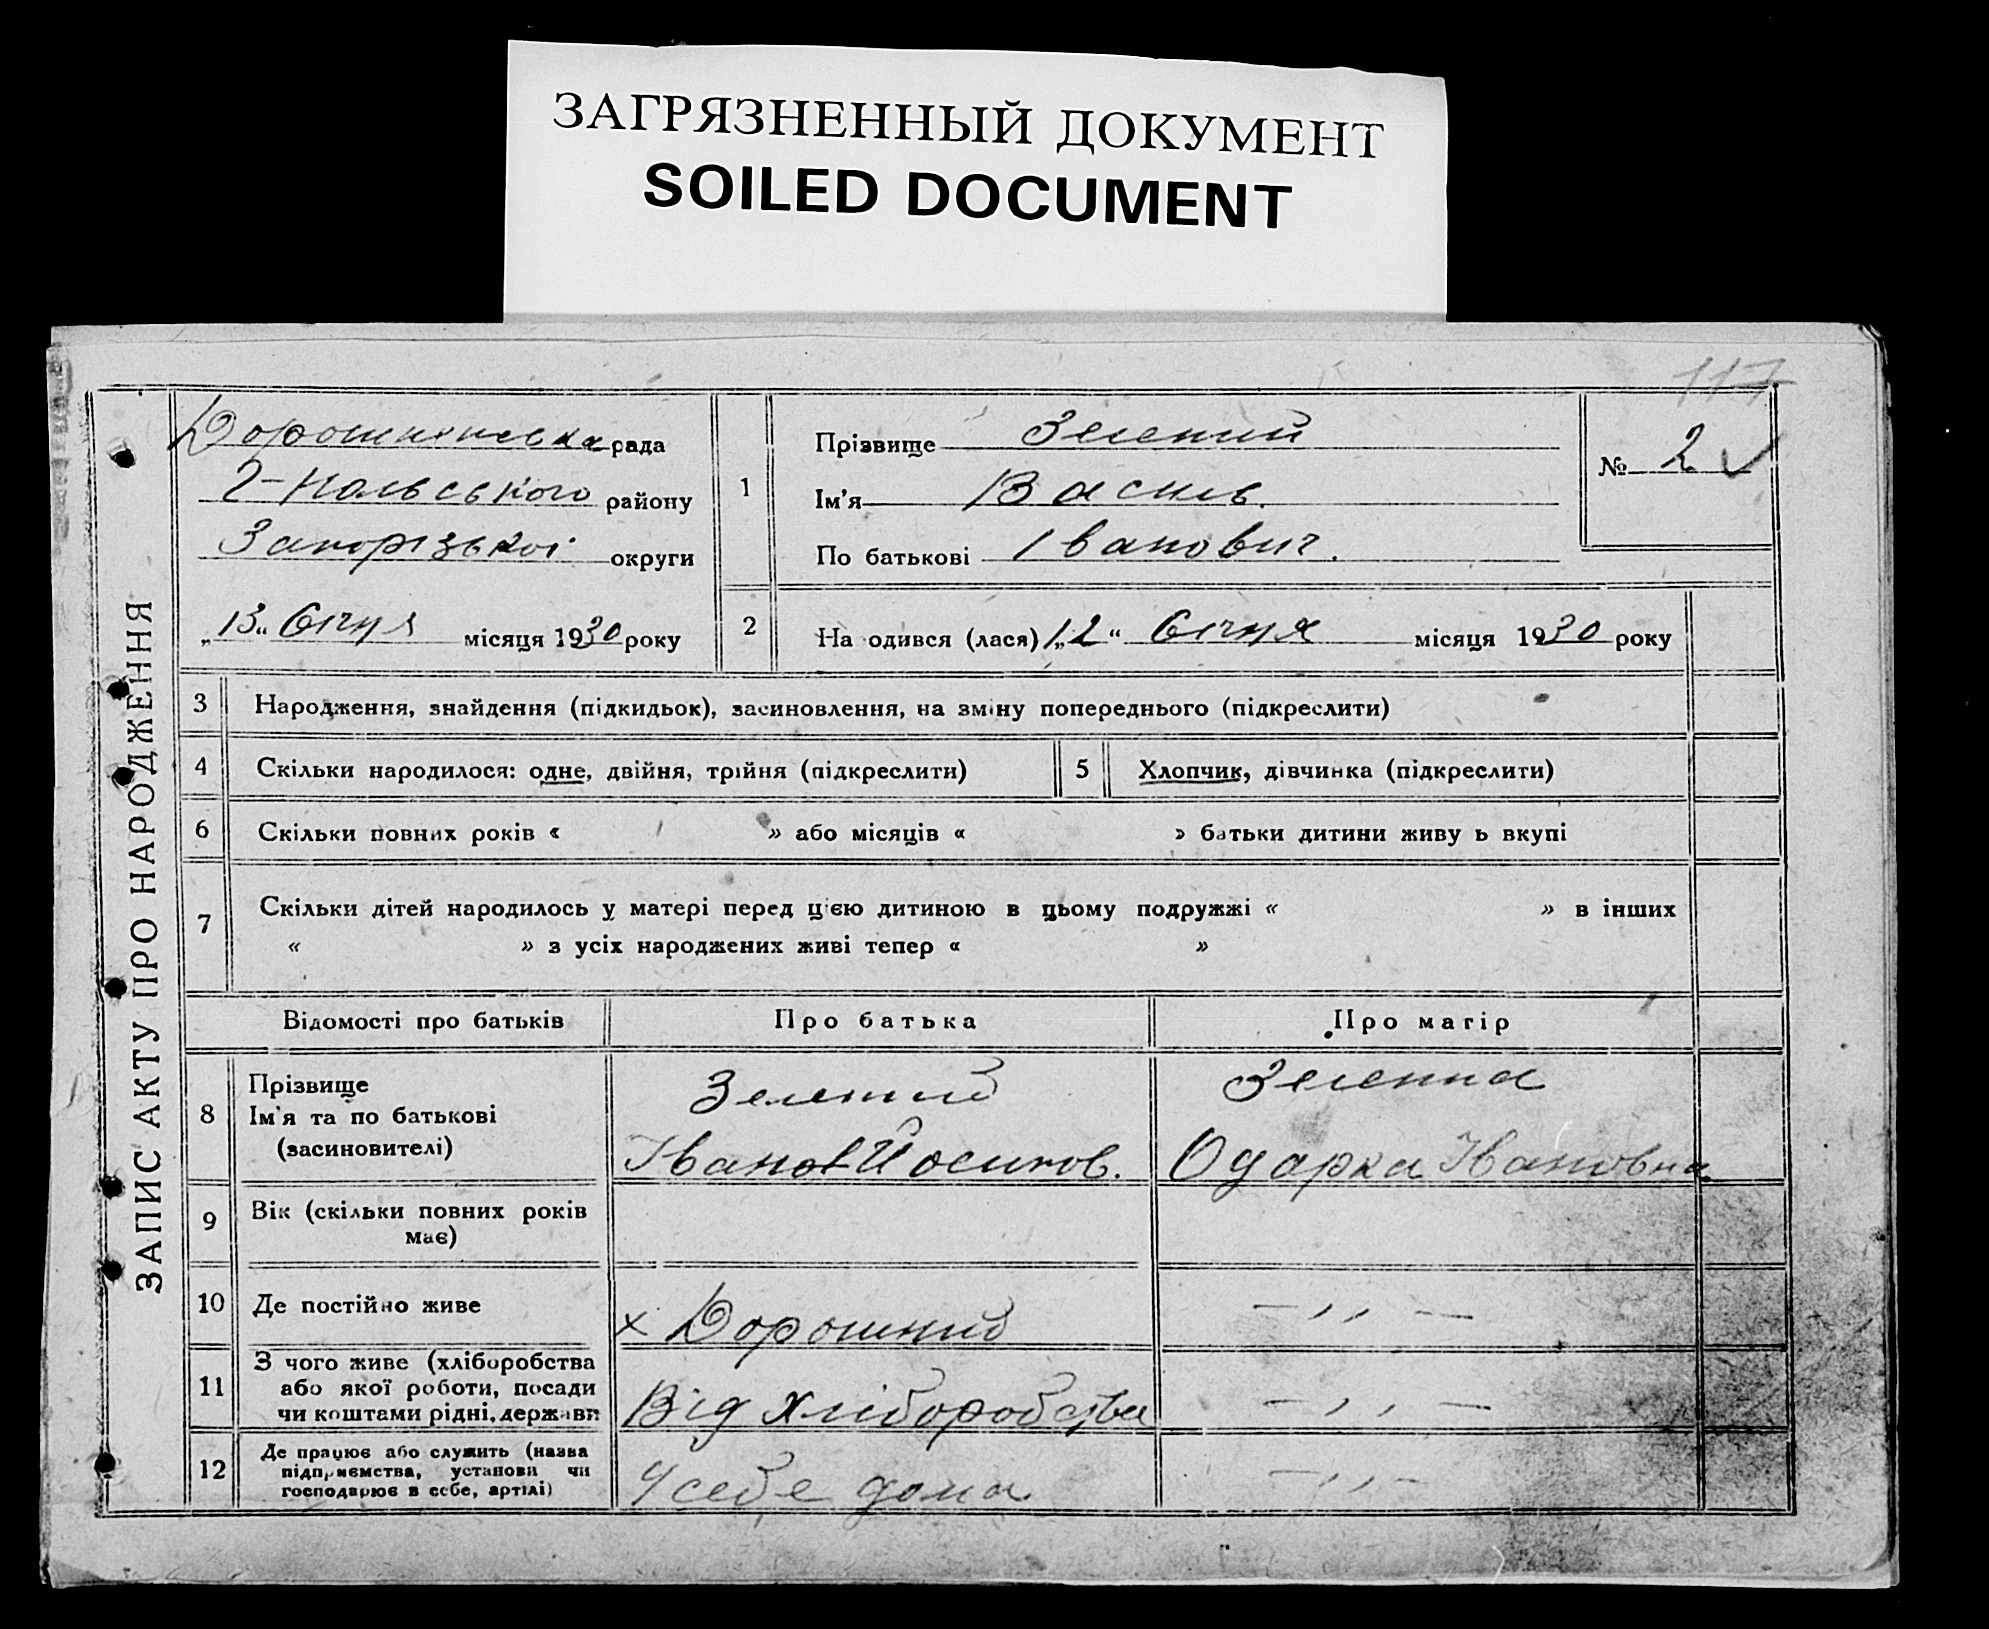 ЗАГРЯЗНЕННЫЙ ДОКУМЕНТ
SOILED DOCUMENT
117
ЗАПИС АКТУ ПРО НАРОДЖЕННЯ
рада
району
Запорізької округи
„13“ Січня місяця 1930 року
1
Прізвище Зелений
Ім'я Василь.
По батькові Іванович.
№ 2
2
На одився (лася) „12“ Січня місяця 1930 року
3 Народження, знайдення (підкидьок), засиновлення, на зміну попереднього (підкреслити)
4 Скільки народилося: одне, двійня, трійня (підкреслити)
5 Хлопчик, дівчинка (підкреслити)
6 Скільки повних років « » або місяців « » батьки дитини живу ь вкупі
7 Скільки дітей народилось у матері перед цією дитиною в цьому подружжі « » в інших
« » з усіх народжених живі тепер « »
Відомості про батьків Про батька Про матір
8 Прізвище
Ім'я та по батькові
(засиновителі)
Зелений
Іван Йосипов.
Зелена
Одарка Івановна
9 Вік (скільки повних років
має)
10 Де постійно живе
х Дорошний
— ,, —
11 З чого живе (хліборобства
або якої роботи, посади
чи коштами рідні, держави
Від хліборобства
— ,, —
12 Де працює або служить (назва
підприємства, установи чи
господарює в себе, артілі)
У себе дома
— ,, —